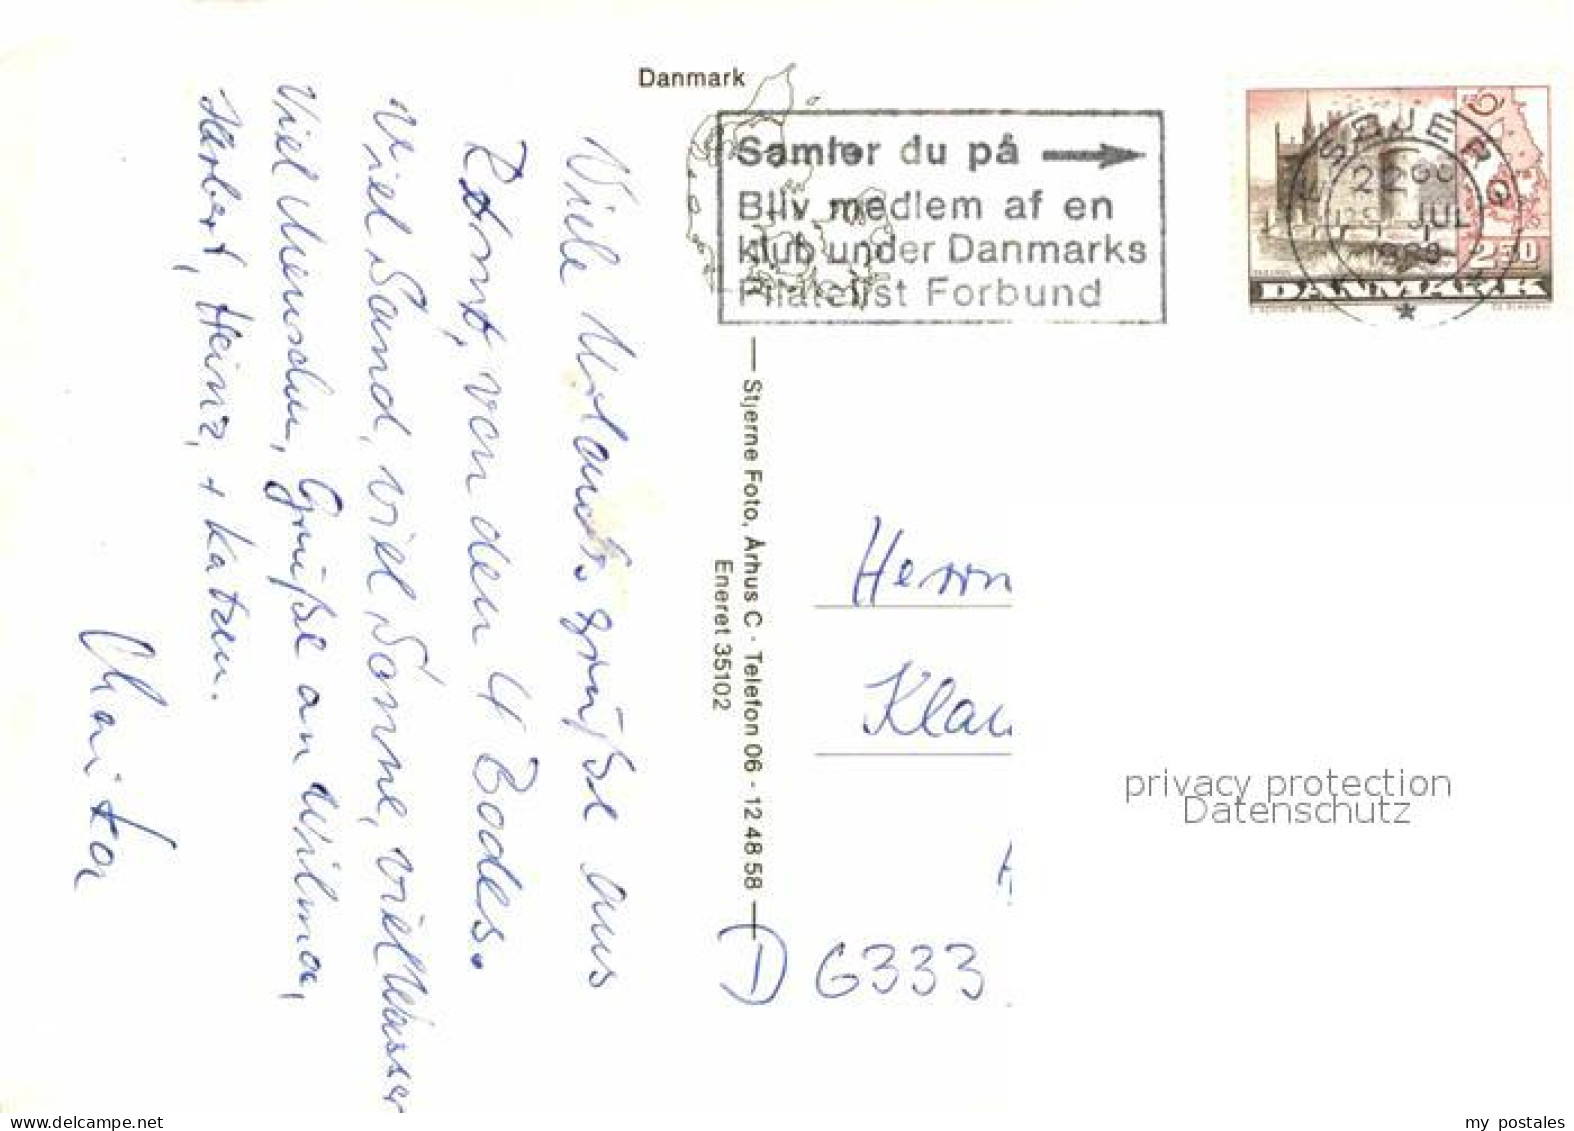 Danmark
Samler du på
Bliv medlem af en
klub under Danmarks
Filatelist Forbund
ESBJERG
22 00
JUL
2 50
DANMARK
Viele Urlaubsgrüße aus
Rømø, von den 4 Bodes.
Viel Sand, viel Sonne, viel Wasser
Viel Menschen, Grüße an Wilma,
Herbert, Heinz, + Katzen.
Marita
Stjerne Foto, Århus C · Telefon 06 - 12 48 58
Eneret 35102
Herrn
Klau
D 6333
privacy protection
Datenschutz
www.delcampe.net
my postales